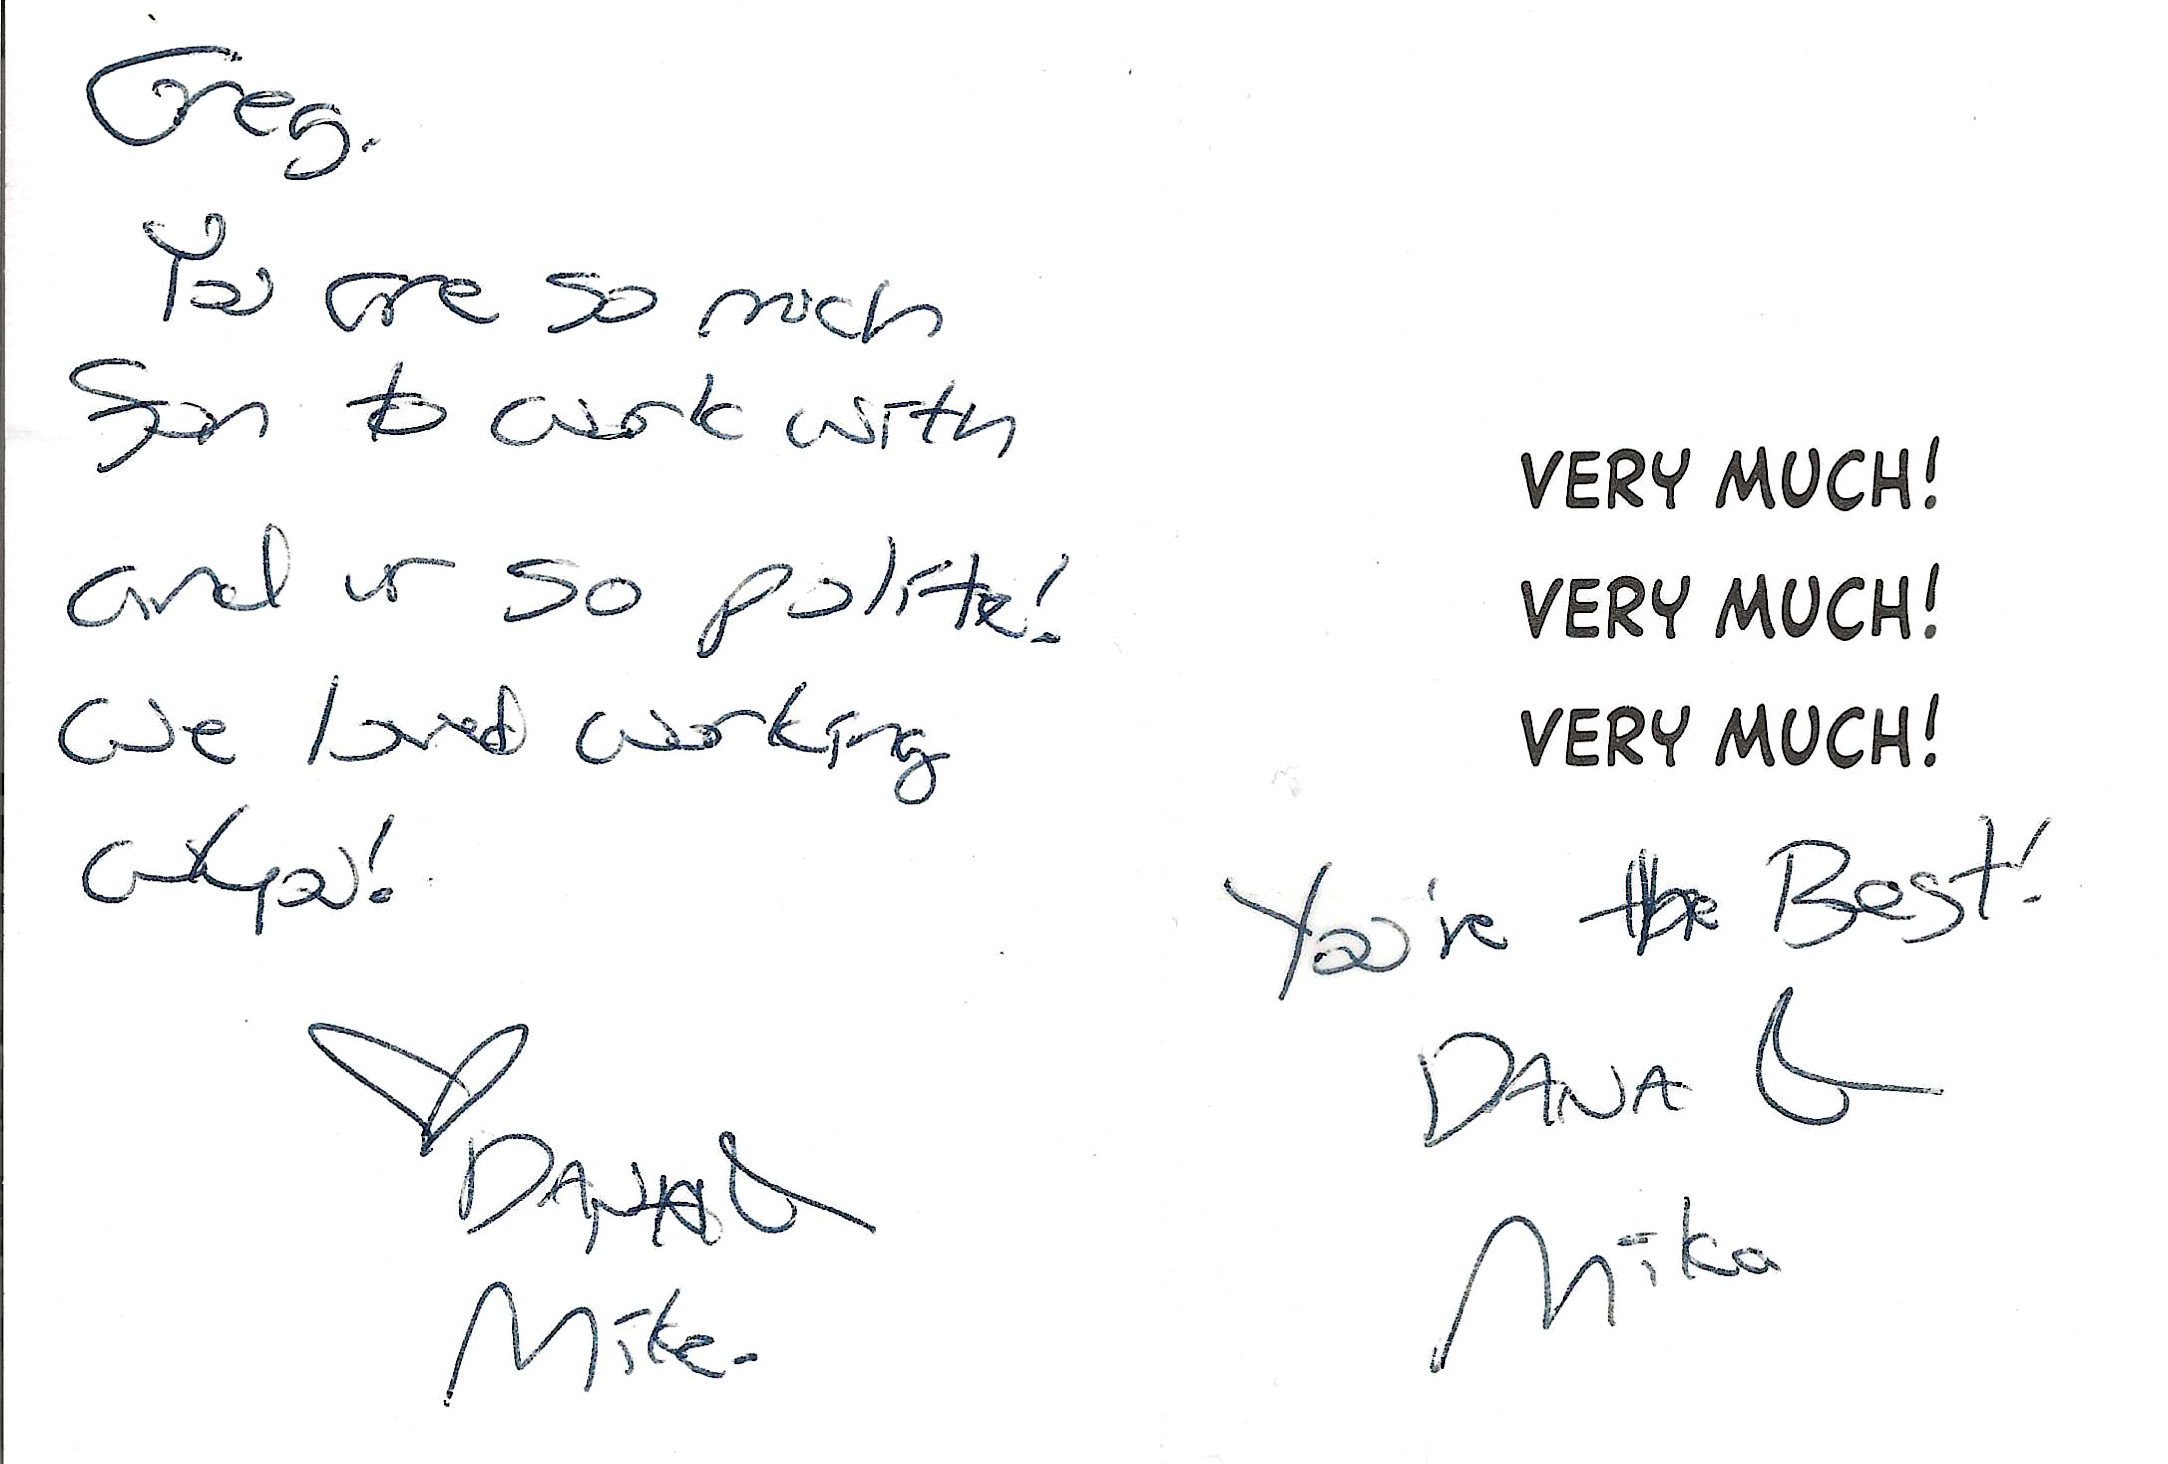 Greg.
You are so much
fun to work with
and ur so polite!
We loved working
w/you!
DANA
Mike.
VERY MUCH!
VERY MUCH!
VERY MUCH!
You're the Best!
DANA
Mika